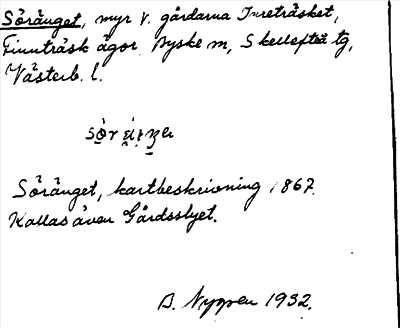 Söränget, myr v. gårdarna Inreträsket,
Finnträsk ägor Byske sn, Skellefteå tg,
Västerb. l.
Söränget, kartbeskrivning 1867.
Kallas även Gårdsslyet.
B. Nygren 1932.